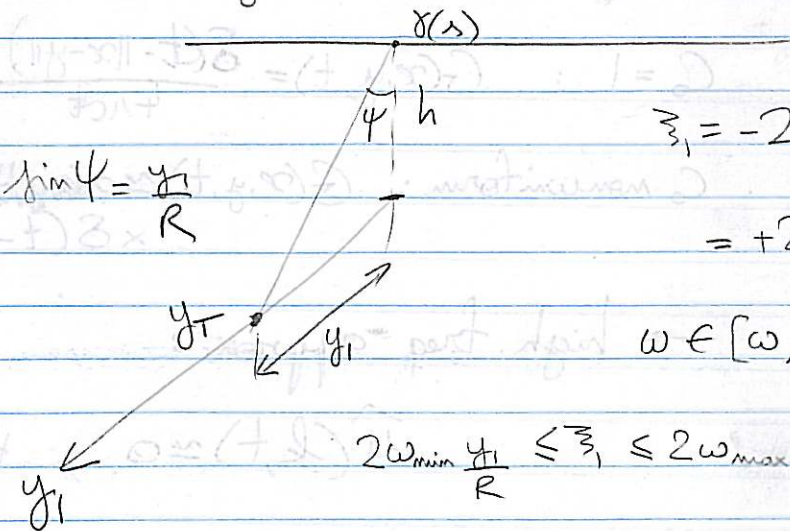 γ(s)
ψ h
ξ₁ = -2
sin ψ = y₁/R
= +2
y_T
y₁
ω ∈ [ω
2ω_min y₁/R ≤ ξ₁ ≤ 2ω_max
y₁